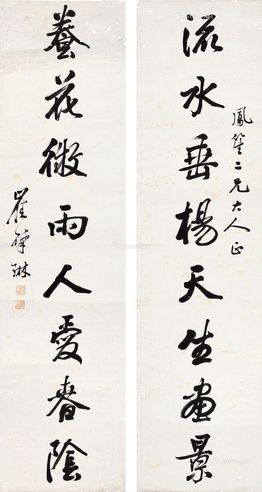 流水垂楊天生畫景
鳳笙二兄大人正
養花微雨人愛春陰
崔舜琳